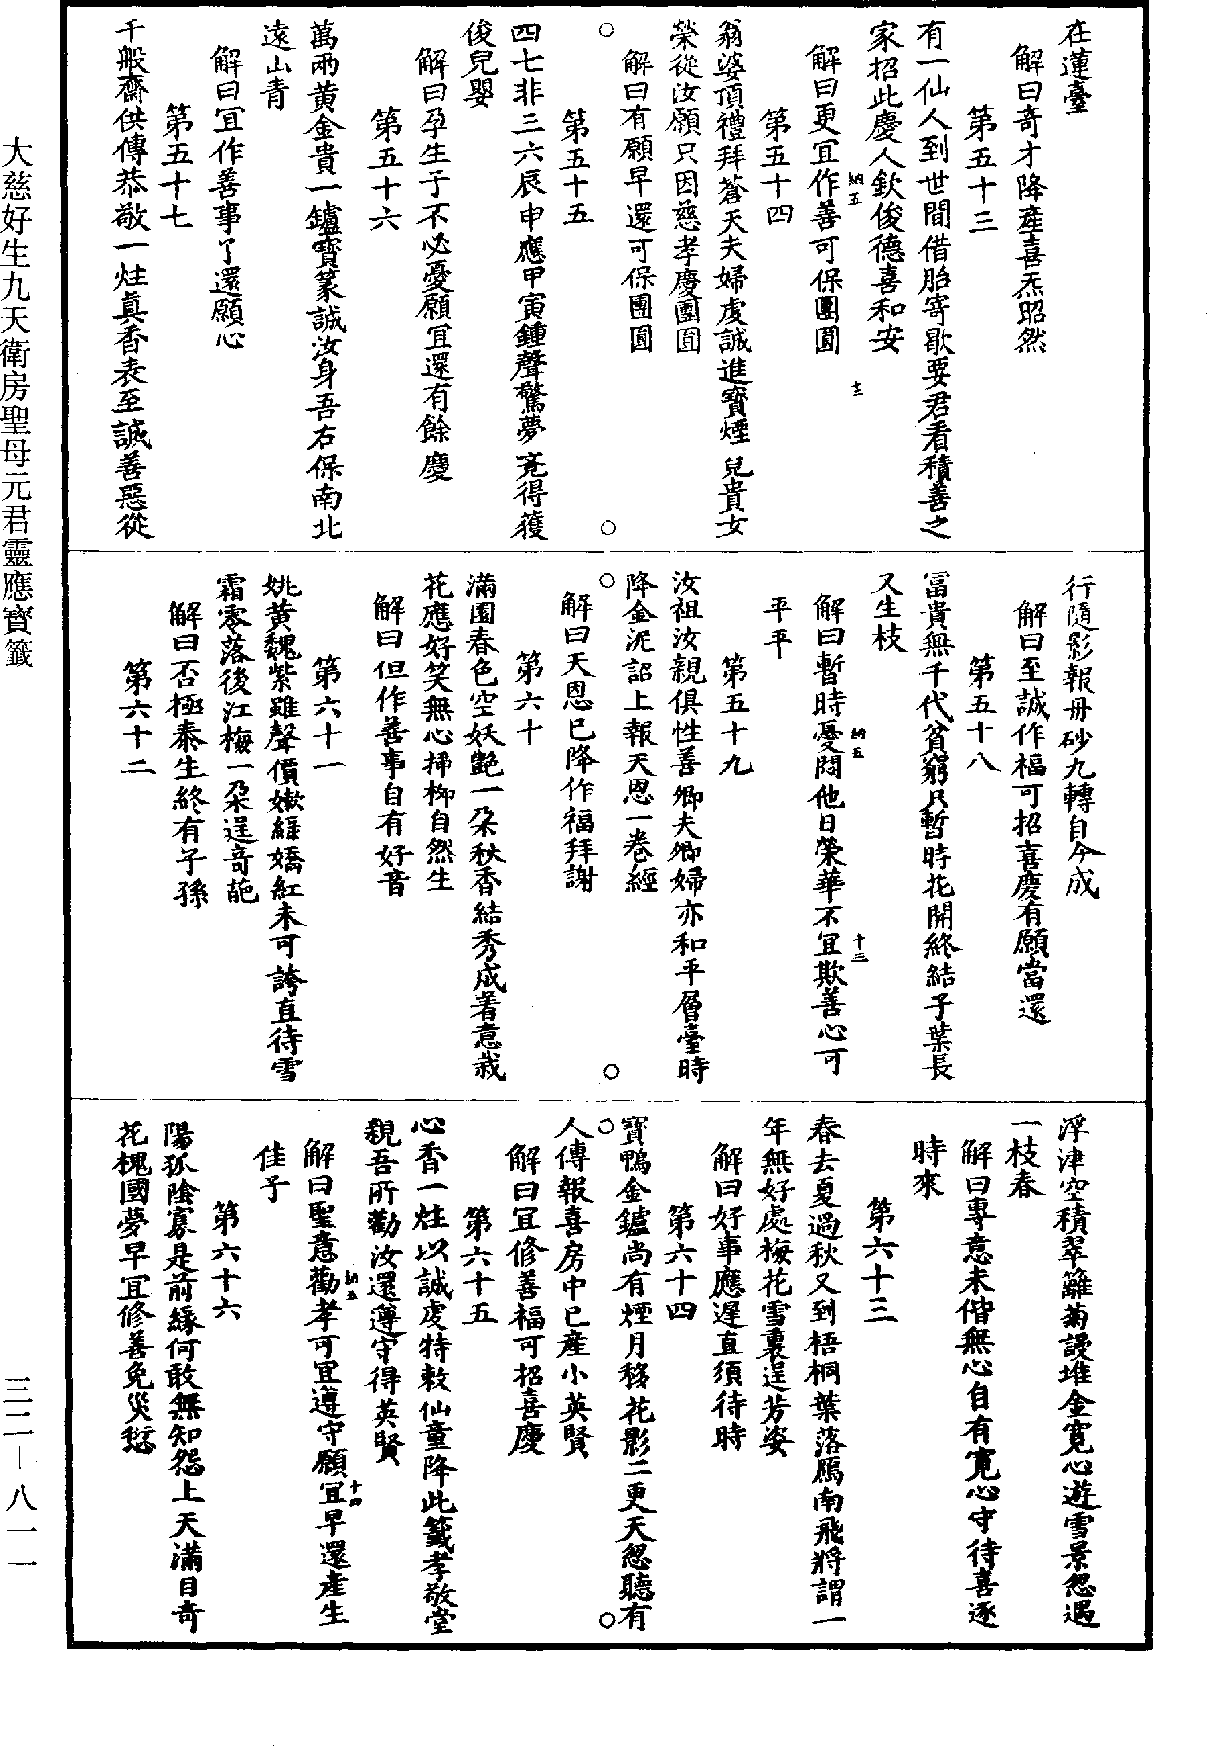 在蓮臺
解曰奇才降產喜炁昭然
第五十三
有一仙人到世間借胎寄歇要君看積善之
家招此慶人欽俊德喜和安
解曰更宜作善可保團圓
納五
十三
第五十四
翁婆頂禮拜蒼天夫婦虔誠進寶煙兒貴女
榮從汝願只因慈孝慶團圓
解曰有願早還可保團圓
第五十五
四七非三六辰申應甲寅鍾聲驚夢竟得獲
俊兒嬰
解曰孕生子不必憂願宜還有餘慶
第五十六
萬兩黃金貴一鑪寶篆誠汝身吾右保南北
遠山青
解曰宜作善事了還願心
第五十七
千般齋供傳恭敬一炷真香表至誠善惡從
行隨影報丹砂九轉自今成
解曰至誠作福可招喜慶有願當還
第五十八
富貴無千代貧窮只暫時花開終結子葉長
又生枝
解曰暫時憂悶他日榮華不宜欺善心可
納五
十三
平平
第五十九
汝祖汝親俱性善卿夫卿婦亦和平層臺時
降金泥詔上報天恩一卷經
解曰天恩已降作福拜謝
第六十
滿園春色空妖艷一朵秋香結秀成著意栽
花應好笑無心插柳自然生
解曰但作善事自有好音
第六十一
姚黃魏紫雖聲價嫩綠嬌紅未可誇直待雪
霜零落後江梅一朵逞奇葩
解曰否極泰生終有子孫
第六十二
浮津空積翠籬菊謾堆金寬心遊雪景忽遇
一枝春
解曰專意未偕無心自有寬心守待喜逐
時來
第六十三
春去夏過秋又到梧桐葉落鴈南飛將謂一
年無好處梅花雪裏逞芳姿
解曰好事應遲直須待時
第六十四
寶鴨金鑪尚有煙月移花影二更天忽聽有
人傳報喜房中已產小英賢
解曰宜修善福可招喜慶
第六十五
心香一炷以誠虔特敕仙童降此籤孝敬堂
親吾所勸汝還遵守得英賢
解曰聖意勸孝可宜遵守願宜早還產生
納五
十四
佳子
第六十六
陽孤陰寡是前緣何敢無知怨上天滿目奇
花槐國夢早宜修善免災愆
大慈好生九天衛房聖母元君靈應寶籤
三二—八一一